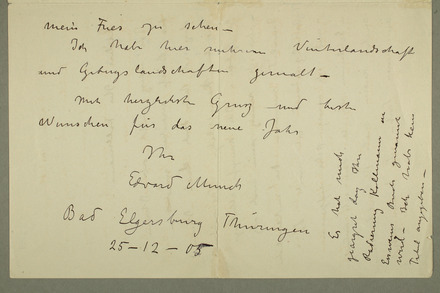 mein Fries zu sehen –
Ich habe hier mehrere Winterlandschaft
und Gebirgslandschaften gemalt –
Mit herzlichste Gruss und beste
Wunschen für das neue Jahr
Ihr
Edvard Munch
Bad Elgersburg Thüringen
25 – 12 – 05
Es hat mich
dass Ihr
wird – Ich habe kein
Titel angegeben –